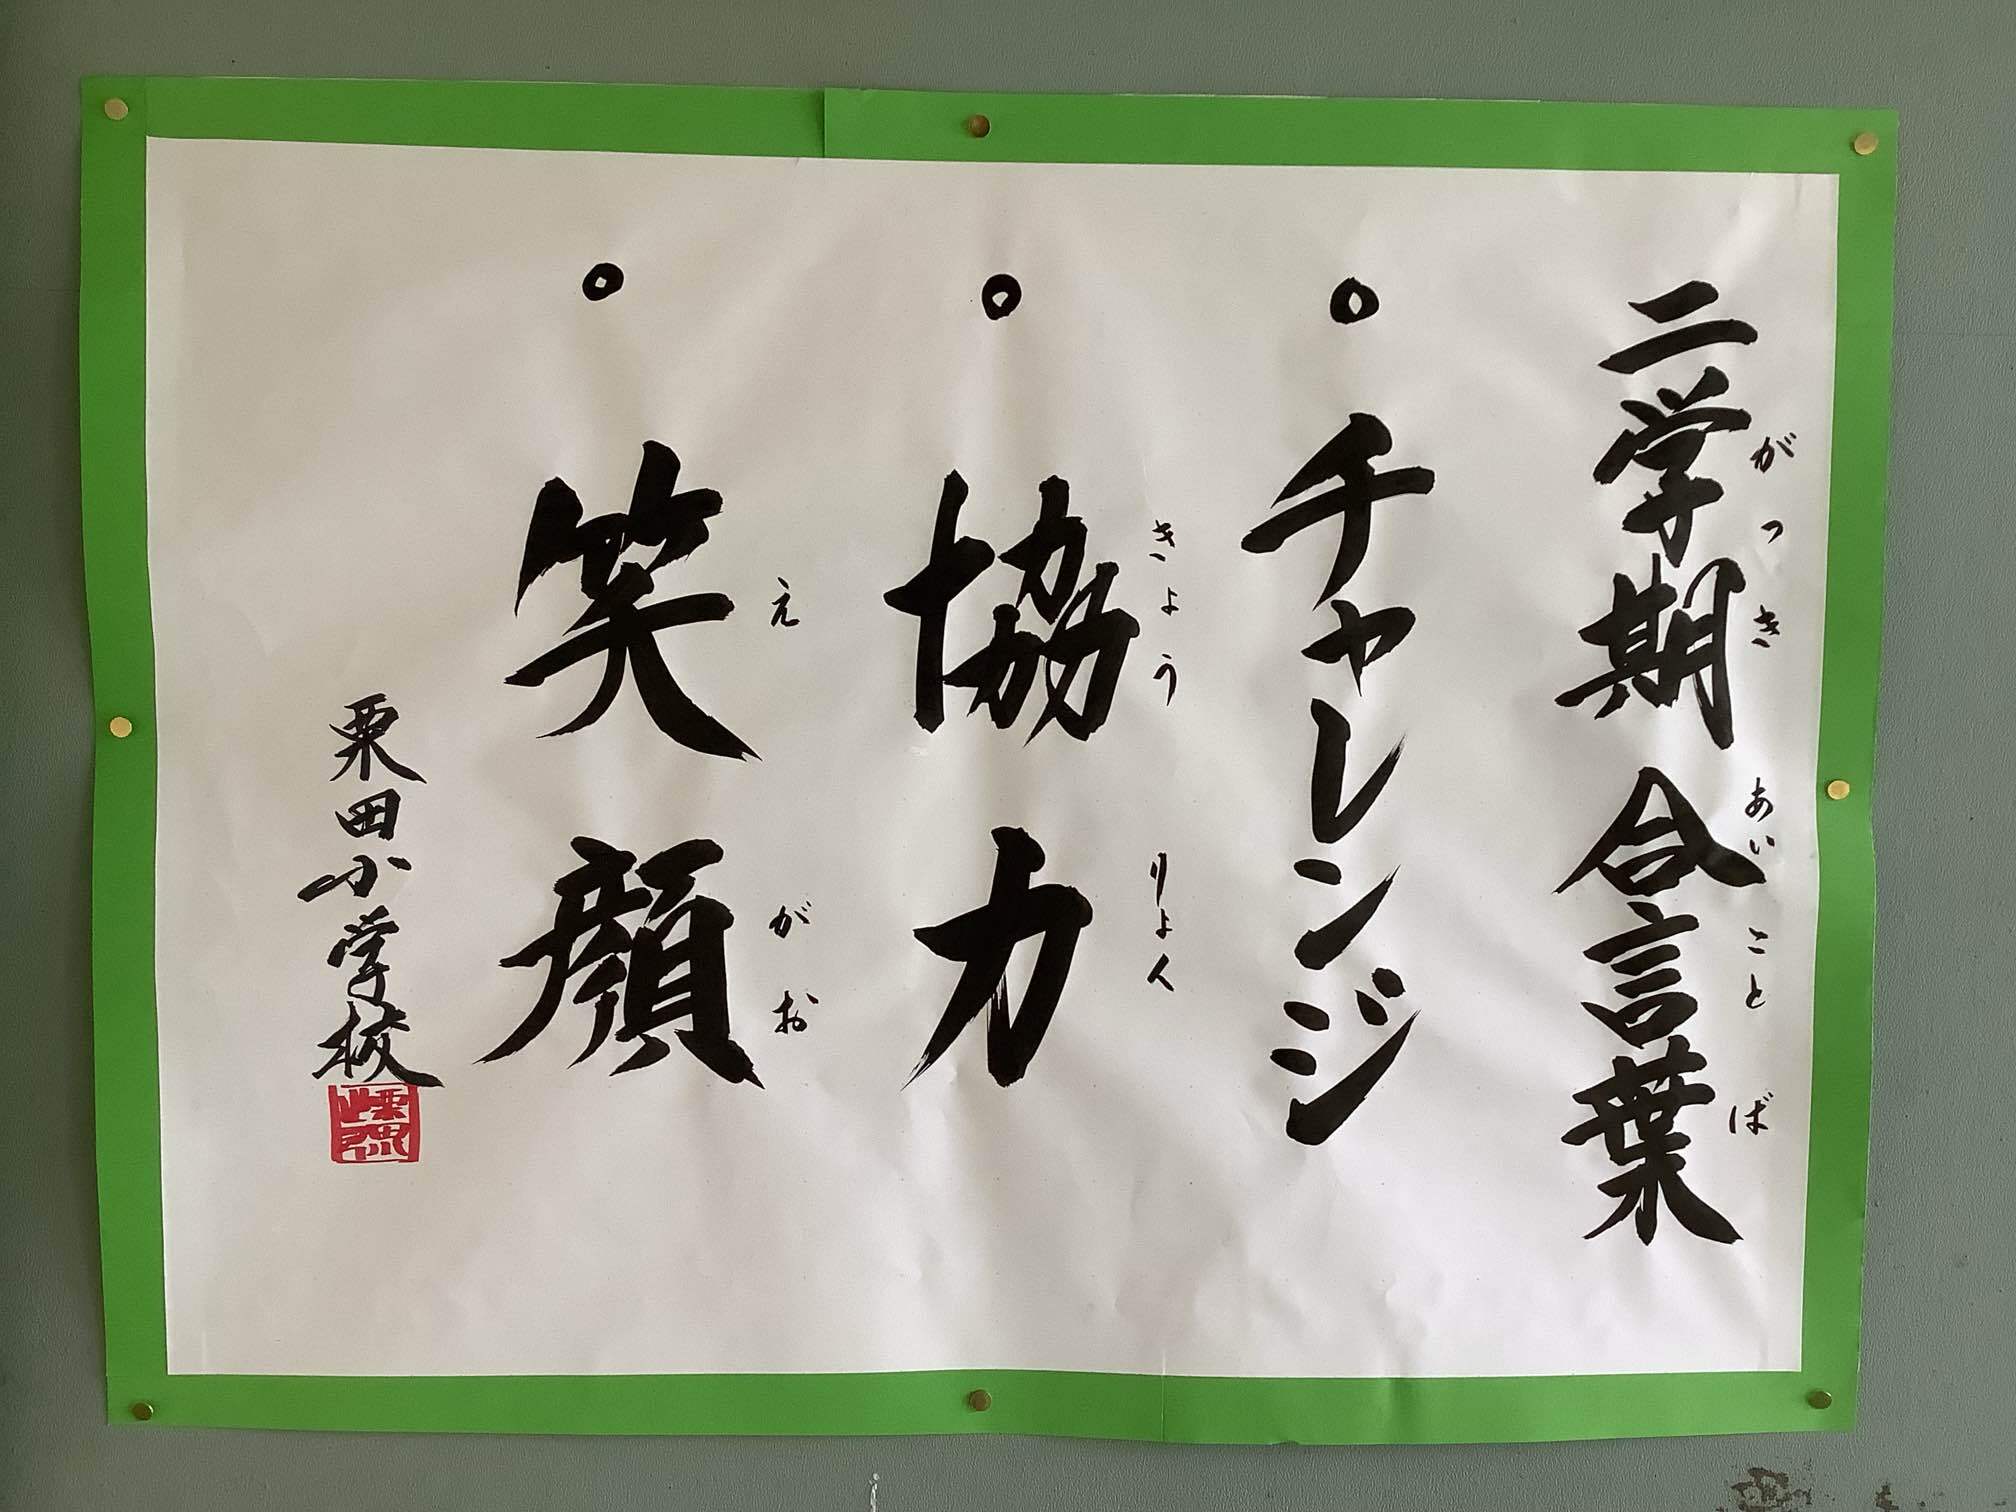 二学期 合言葉
がっき あいことば
。チャレンジ
。協力
きょうりょく
。笑顔
えがお
栗田小学校